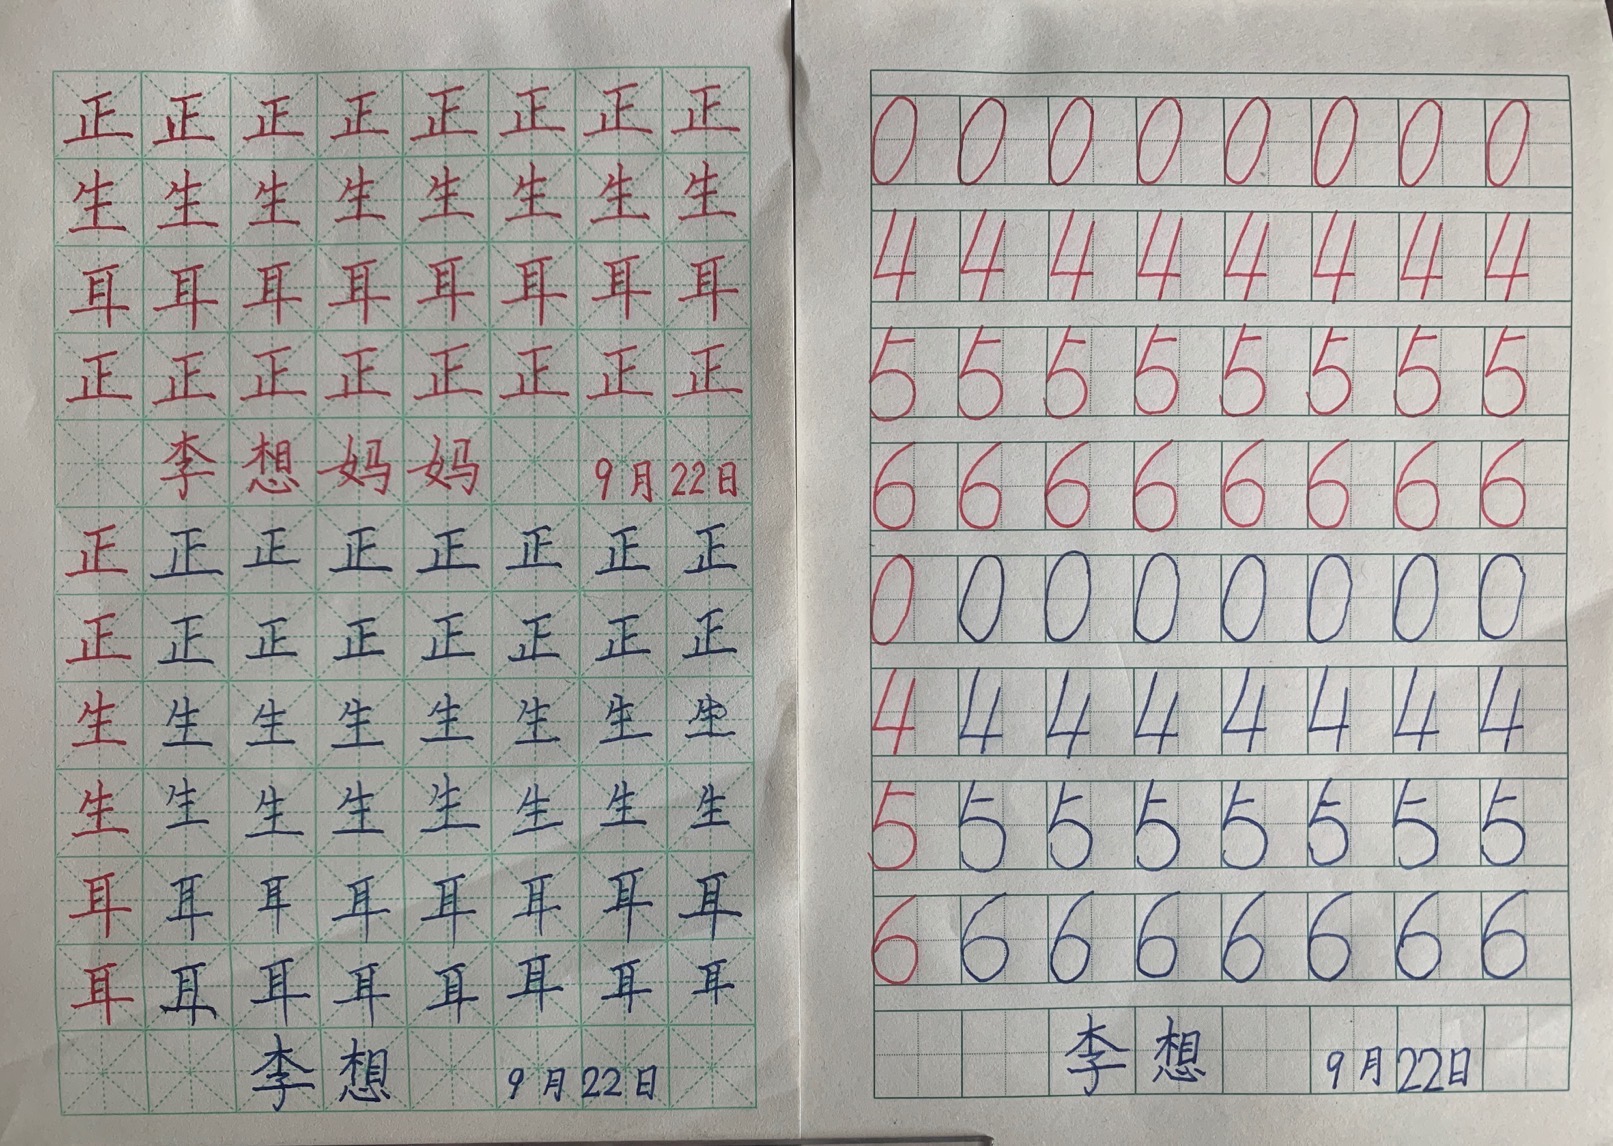 正正正正正正正正
生生生生生生生生
耳耳耳耳耳耳耳耳
正正正正正正正正
李想妈妈 9月22日
正正正正正正正正
正正正正正正正正
生生生生生生生生
生生生生生生生生
耳耳耳耳耳耳耳耳
耳耳耳耳耳耳耳耳
李想 9月22日
0 0 0 0 0 0 0 0
4 4 4 4 4 4 4 4
5 5 5 5 5 5 5 5
6 6 6 6 6 6 6 6
0 0 0 0 0 0 0 0
4 4 4 4 4 4 4 4
5 5 5 5 5 5 5 5
6 6 6 6 6 6 6 6
李想 9月22日